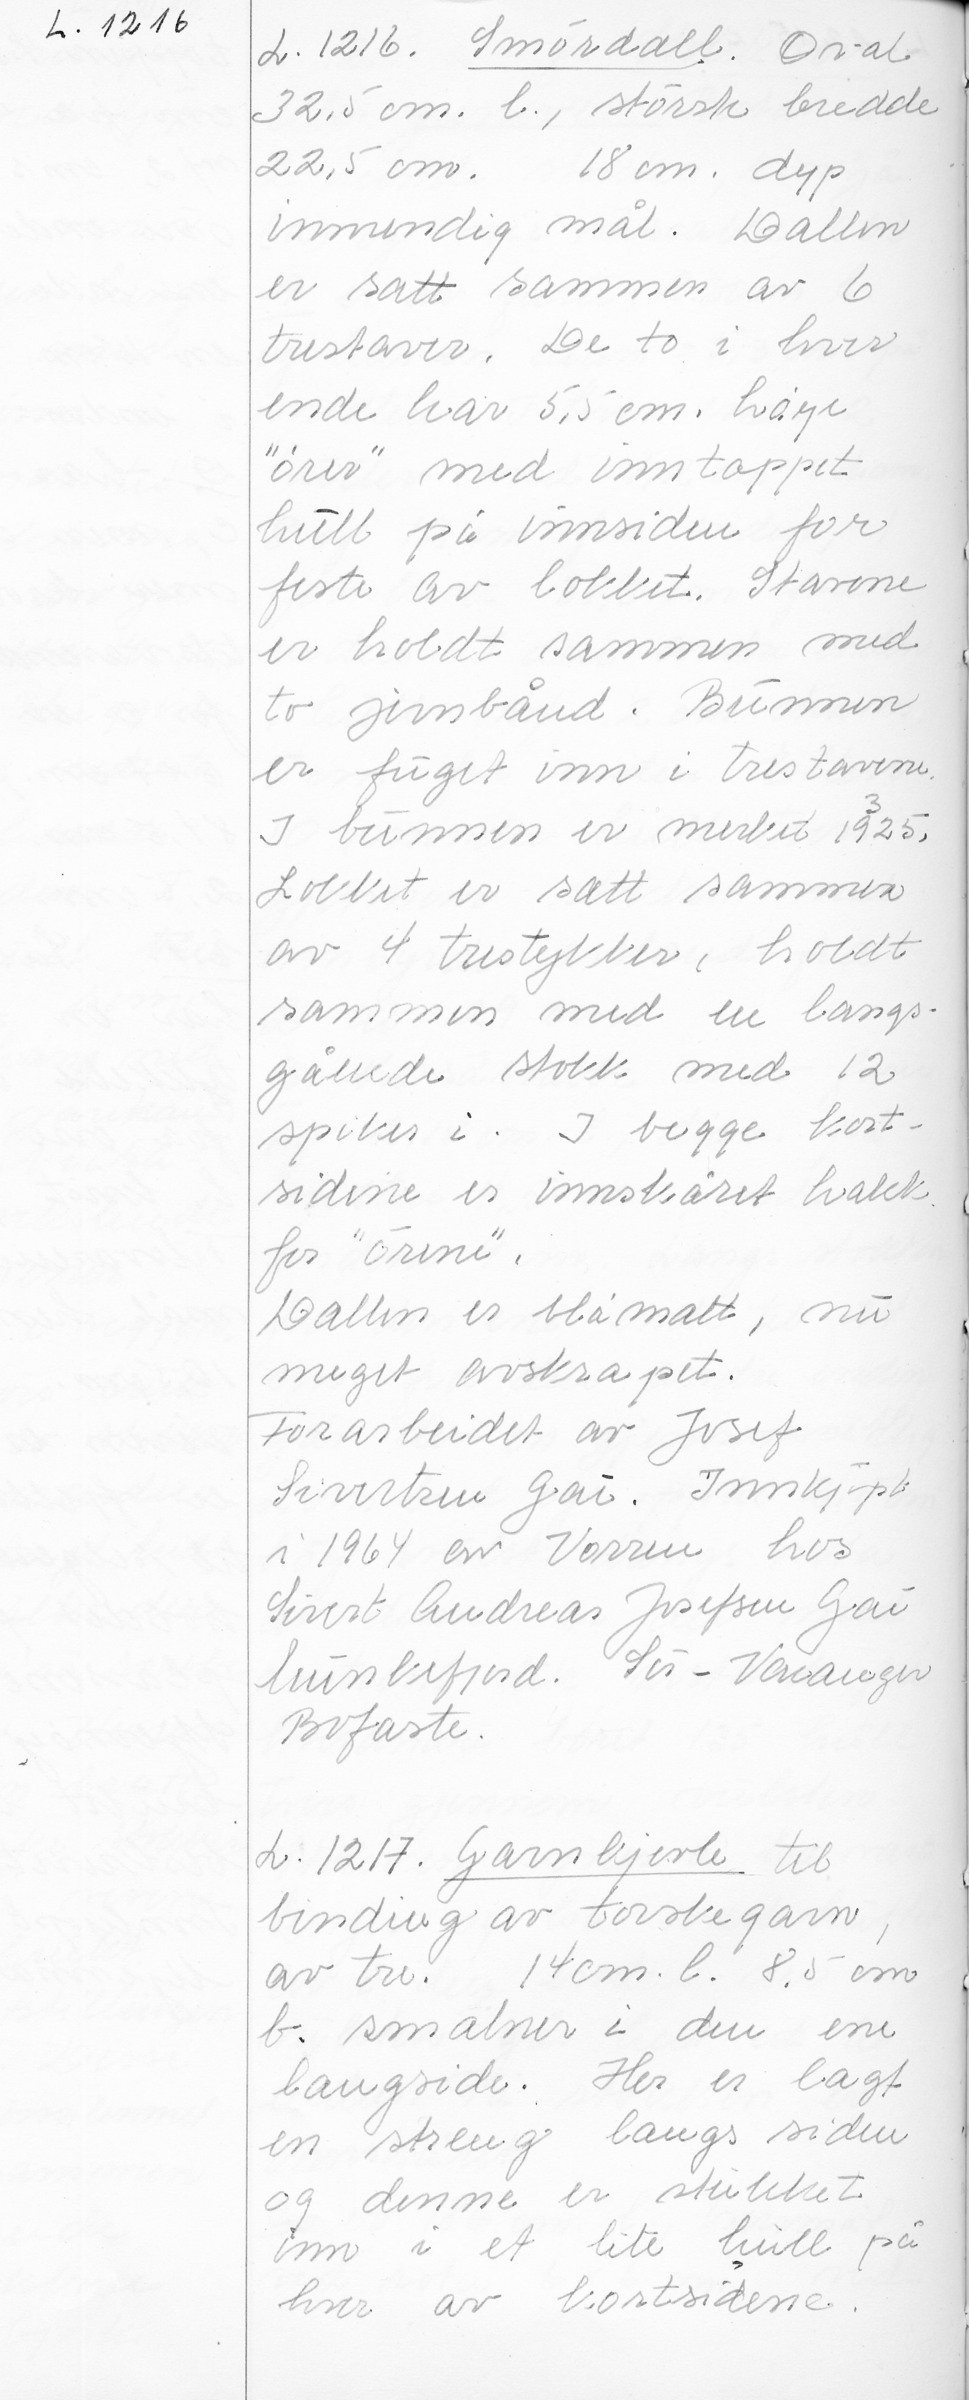 L. 1216
L. 1216. Smördall. Oval
32,5 cm. l., störsk bredde
22,5 cm. 18 cm. dyp
innvendig mål. Dallen
er satt sammen av 6
trestaver. De to i hver
ende har 5,5 cm. höye
"örer" med inntappet
hull på innsiden for
feste av lokket. Stavene
er holdt sammen med
to jernbånd. Bunnen
er fuget inn i trestavene.
I bunnen er merket 1925.
3
Lokket er satt sammen
av 4 trestykker, holdt
sammen med en langs-
gående stokk med 12
spiker i. I begge kort-
sidene er innskåret hakk
for "örene".
Dallen er blåmalt, nu
meget avskrapet.
Forarbeidet av Josef
Sivertsen Gai. Innkjöpt
i 1964 av Vorren hos
Sivert Andreas Josefsen Gai
Munkefjord. Sör-Varanger
Bofaste.
L. 1217. Garnkjevle til
binding av torskegarn,
av tre. 14 cm. l. 8,5 cm
b. smalner i den ene
langside. Her er lagt
en streng langs siden
og denne er stukket
inn i et lite hull på
hver av kortsidene.